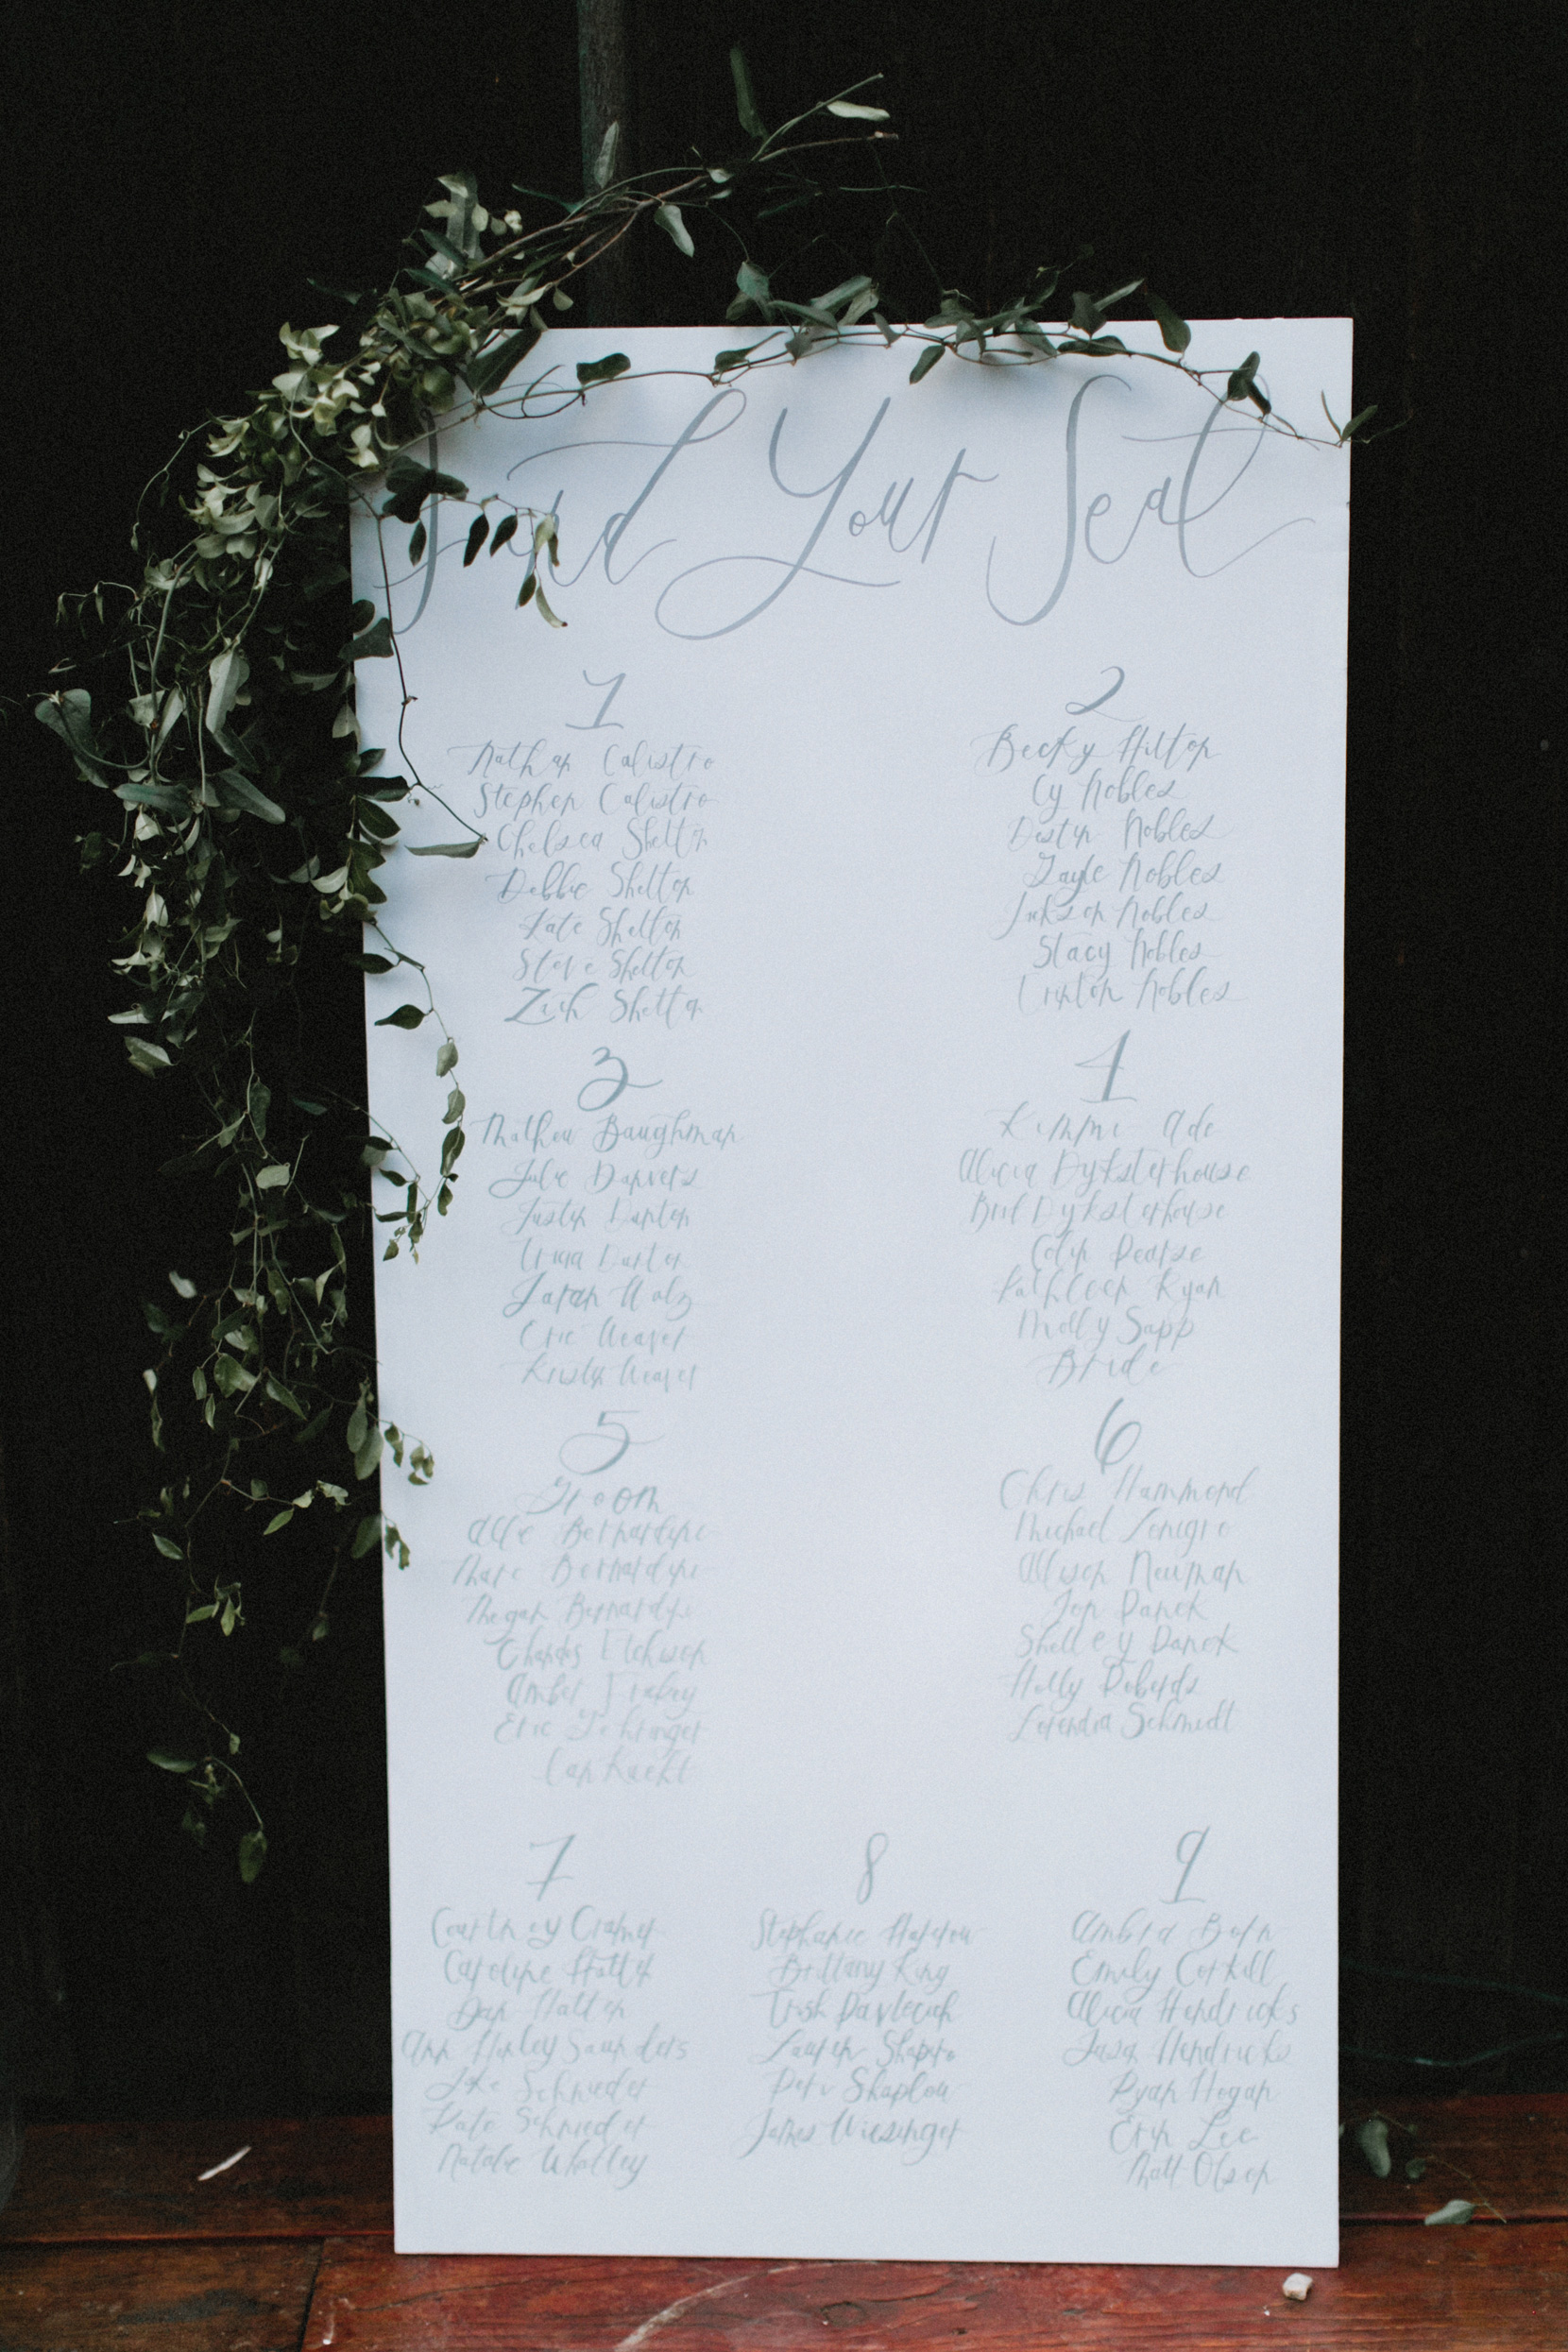 Find Your Seat
1
Nathan Calistro
Stephen Calistro
Chelsea Shelton
Debbie Shelton
Kate Shelton
Steve Shelton
Zach Shelton
2
Becky Hilton
Cy Nobles
Destyn Nobles
Gayle Nobles
Jackson Nobles
Stacy Nobles
Nobles
3
Mathew Baughman
Julie Danvers
Justin Danton
Sarah Holz
Eric Weaver
Kristen Weaver
4
Kimmi Ade
Alicia Dyksterhouse
Bret Dyksterhouse
Colin Pearse
Kathleen Ryan
Molly Sapp
Bride
5
Groom
Allie Bernardini
Marc Bernardini
Megan Bernardini
Amber
Eric Gehringer
Ian
6
Chris Hammond
Michael Lonigro
Allison Neuman
Jon Panek
Shelley Panek
Holly Roberds
Schmidt
7
Courtney Cramer
Caroline Hatter
Dan Hatter
Ann Hurley Saunders
Jake Schnieder
Kate Schnieder
Natalie Whatley
8
Stephanie
Brittany King
Trish Pavlecich
Lauren Shapiro
Shaplow
James Wiesinger
9
Ambra Born
Emily Corkill
Alicia Hendricks
Jason Hendricks
Ryan Hogan
Erin Lee
Matt Olson